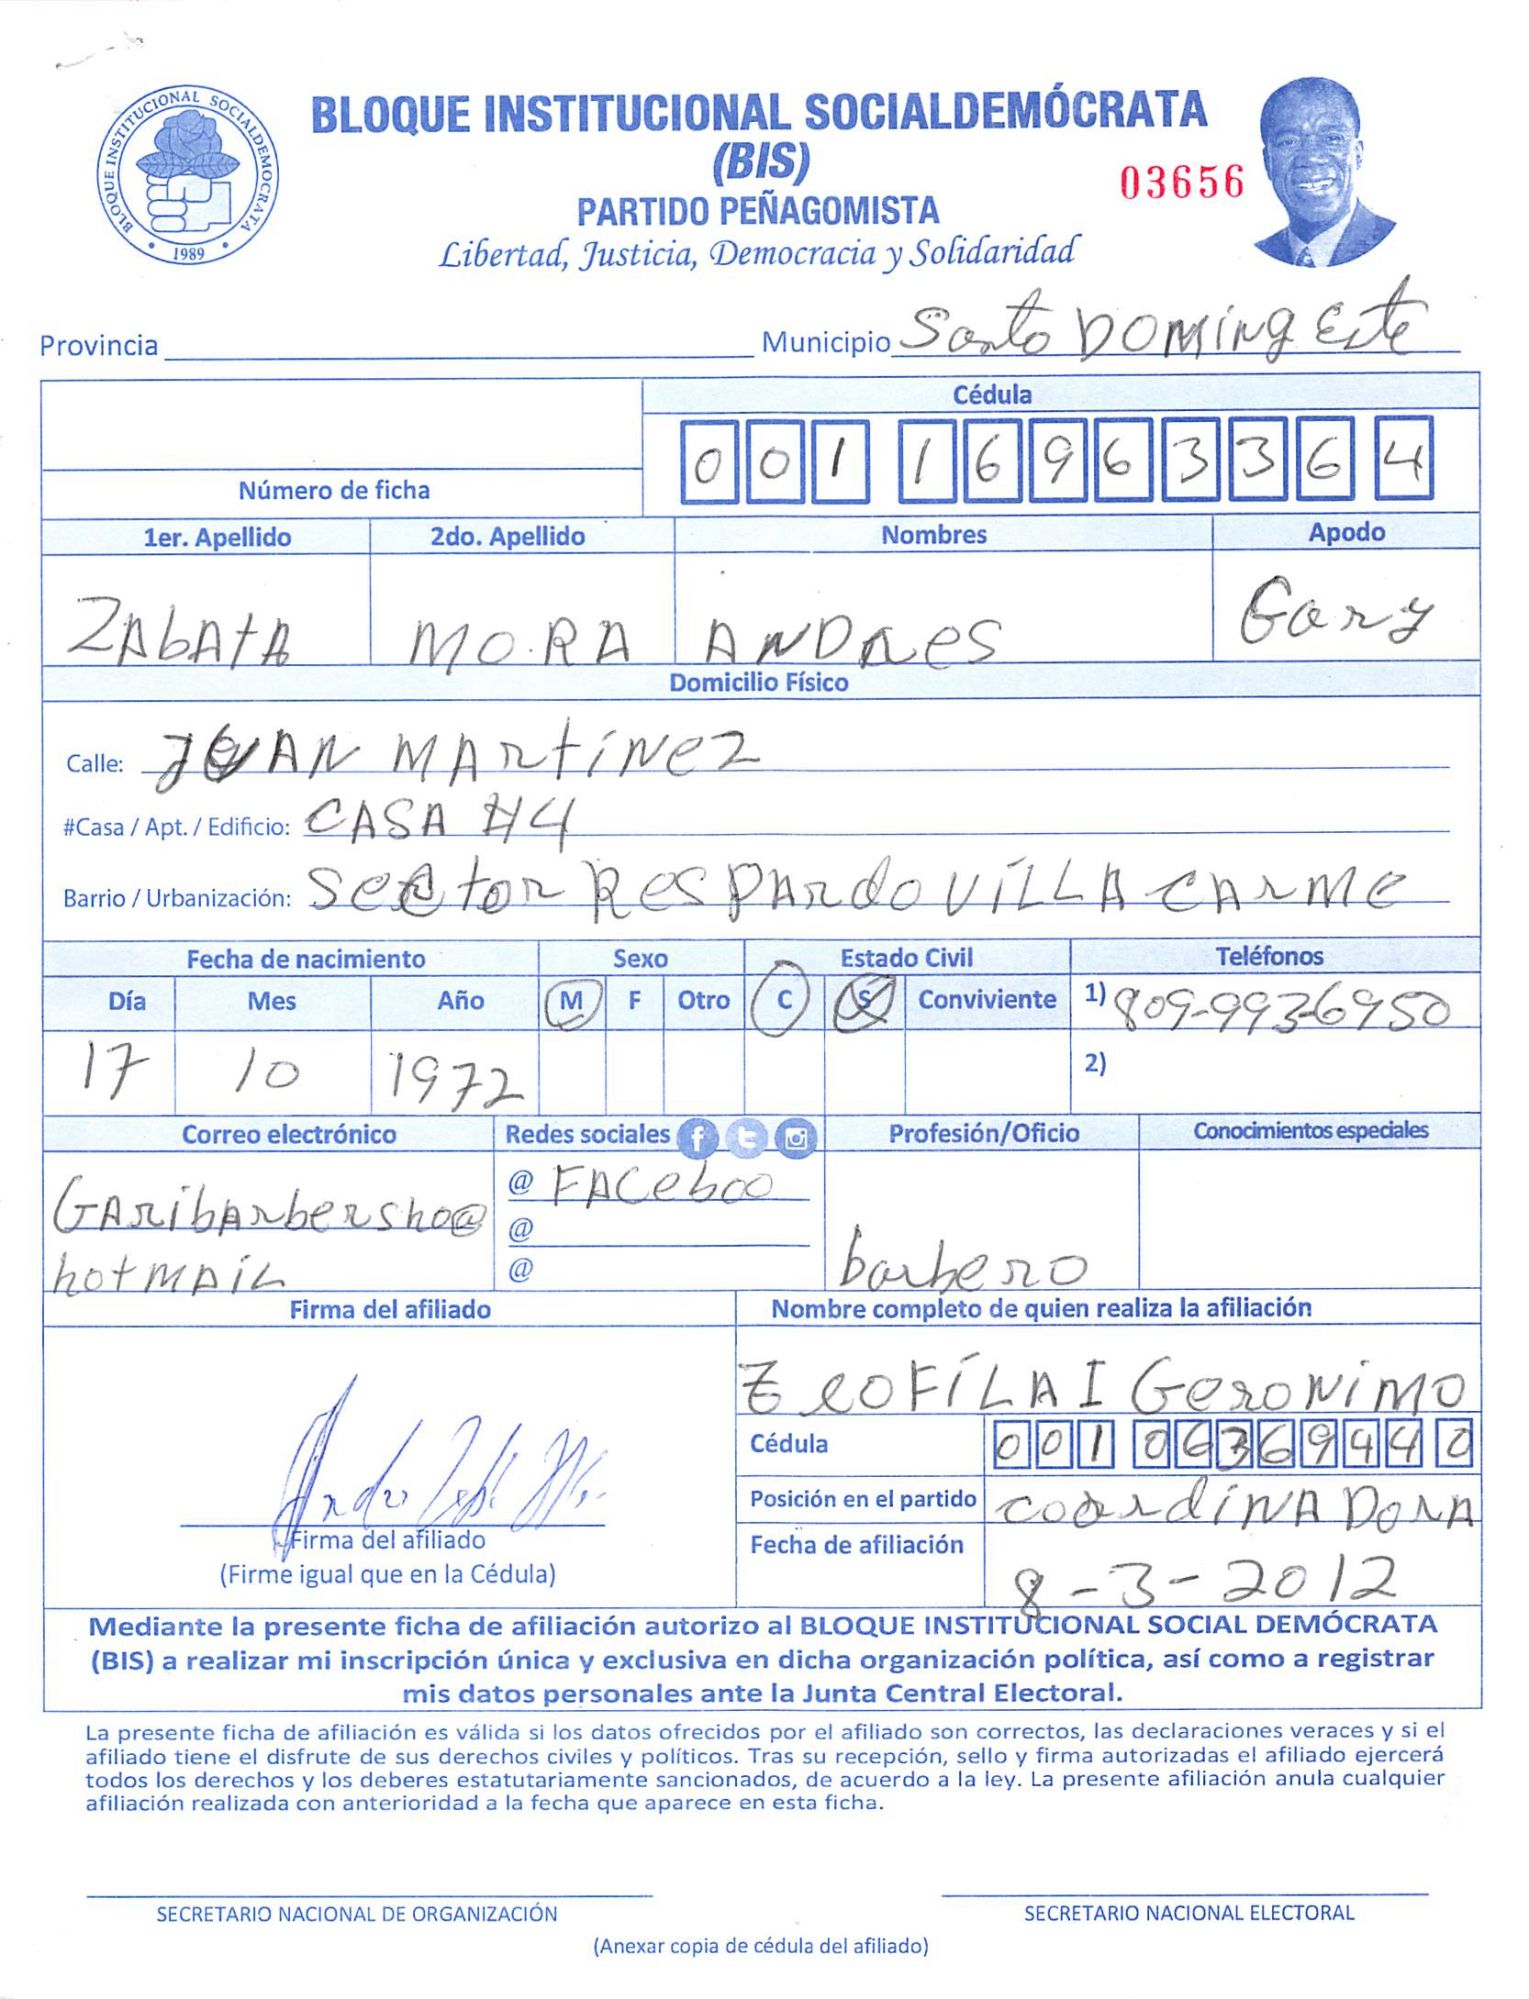 BLOQUE INSTITUCIONAL SOCIALDEMOCRATA
1989
BLOQUE INSTITUCIONAL SOCIALDEMÓCRATA
(BIS)
03656
PARTIDO PEÑAGOMISTA
Libertad, Justicia, Democracia y Solidaridad
Provincia Municipio Santo DOMING Este
Cédula
0 0 1 1 6 9 6 3 3 6 4
Número de ficha
1er. Apellido 2do. Apellido Nombres Apodo
ZAbAtA MORA ANDRES Gary
Domicilio Físico
Calle: JUAN MARtíNez
#Casa / Apt. / Edificio: CASA #4
Barrio / Urbanización: Sector RESPARdo VíLLA CArMe
Fecha de nacimiento Sexo Estado Civil Teléfonos
Día Mes Año M F Otro C S Conviviente 1) 809-993-6950
17 10 1972 2)
Correo electrónico Redes sociales Profesión/Oficio Conocimientos especiales
GARibARbersho@ @ FACeboo
@
hotMAiL @ barbero
Firma del afiliado Nombre completo de quien realiza la afiliación
GeRONiMO
Cédula 0 0 1 0 6 3 6 9 4 4 0
Posición en el partido coordiNADORA
Firma del afiliado Fecha de afiliación
(Firme igual que en la Cédula) 8-3-2012
Mediante la presente ficha de afiliación autorizo al BLOQUE INSTITUCIONAL SOCIAL DEMÓCRATA
(BIS) a realizar mi inscripción única y exclusiva en dicha organización política, así como a registrar
mis datos personales ante la Junta Central Electoral.
La presente ficha de afiliación es válida si los datos ofrecidos por el afiliado son correctos, las declaraciones veraces y si el
afiliado tiene el disfrute de sus derechos civiles y políticos. Tras su recepción, sello y firma autorizadas el afiliado ejercerá
todos los derechos y los deberes estatutariamente sancionados, de acuerdo a la ley. La presente afiliación anula cualquier
afiliación realizada con anterioridad a la fecha que aparece en esta ficha.
SECRETARIO NACIONAL DE ORGANIZACIÓN SECRETARIO NACIONAL ELECTORAL
(Anexar copia de cédula del afiliado)